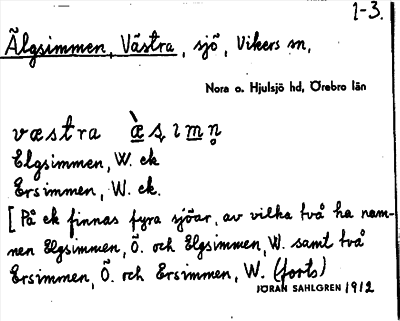 1-3.
Älgsimmen, Västra, sjö, Vikers sn,
Nora o. Hjulsjö hd, Örebro län
væstra
Elgsimmen, W. ek
Ersimmen, W. ek.
[På ek finnas fyra sjöar, av vilka två ha nam-
nen Elgsimmen, Ö. och Elgsimmen, W. samt två
Ersimmen, Ö. och Ersimmen, W. (forts)
JÖRAN SAHLGREN 1912